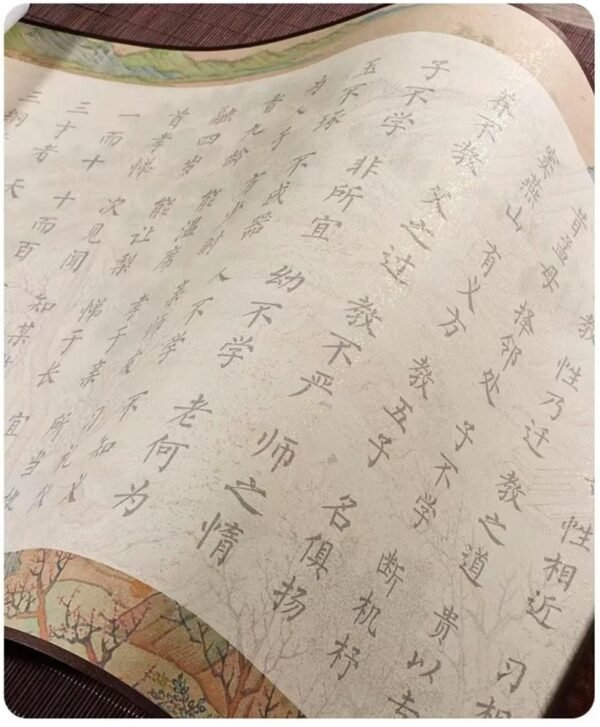 性相近 习相
教 性乃迁 教之道 贵以专
昔孟母 择邻处 子不学 断机杼
窦燕山 有义方 教五子 名俱扬
养不教 父之过 教不严 师之惰
子不学 非所宜 幼不学 老何为
玉不琢 不成器 人不学 不知义
为人子 方少时 亲师友 习礼仪
香九龄 能温席 孝于亲 所当执
融四岁 能让梨 悌于长 宜
首孝悌 次见闻 知某
一而十 十而百
三才者 天
三纲